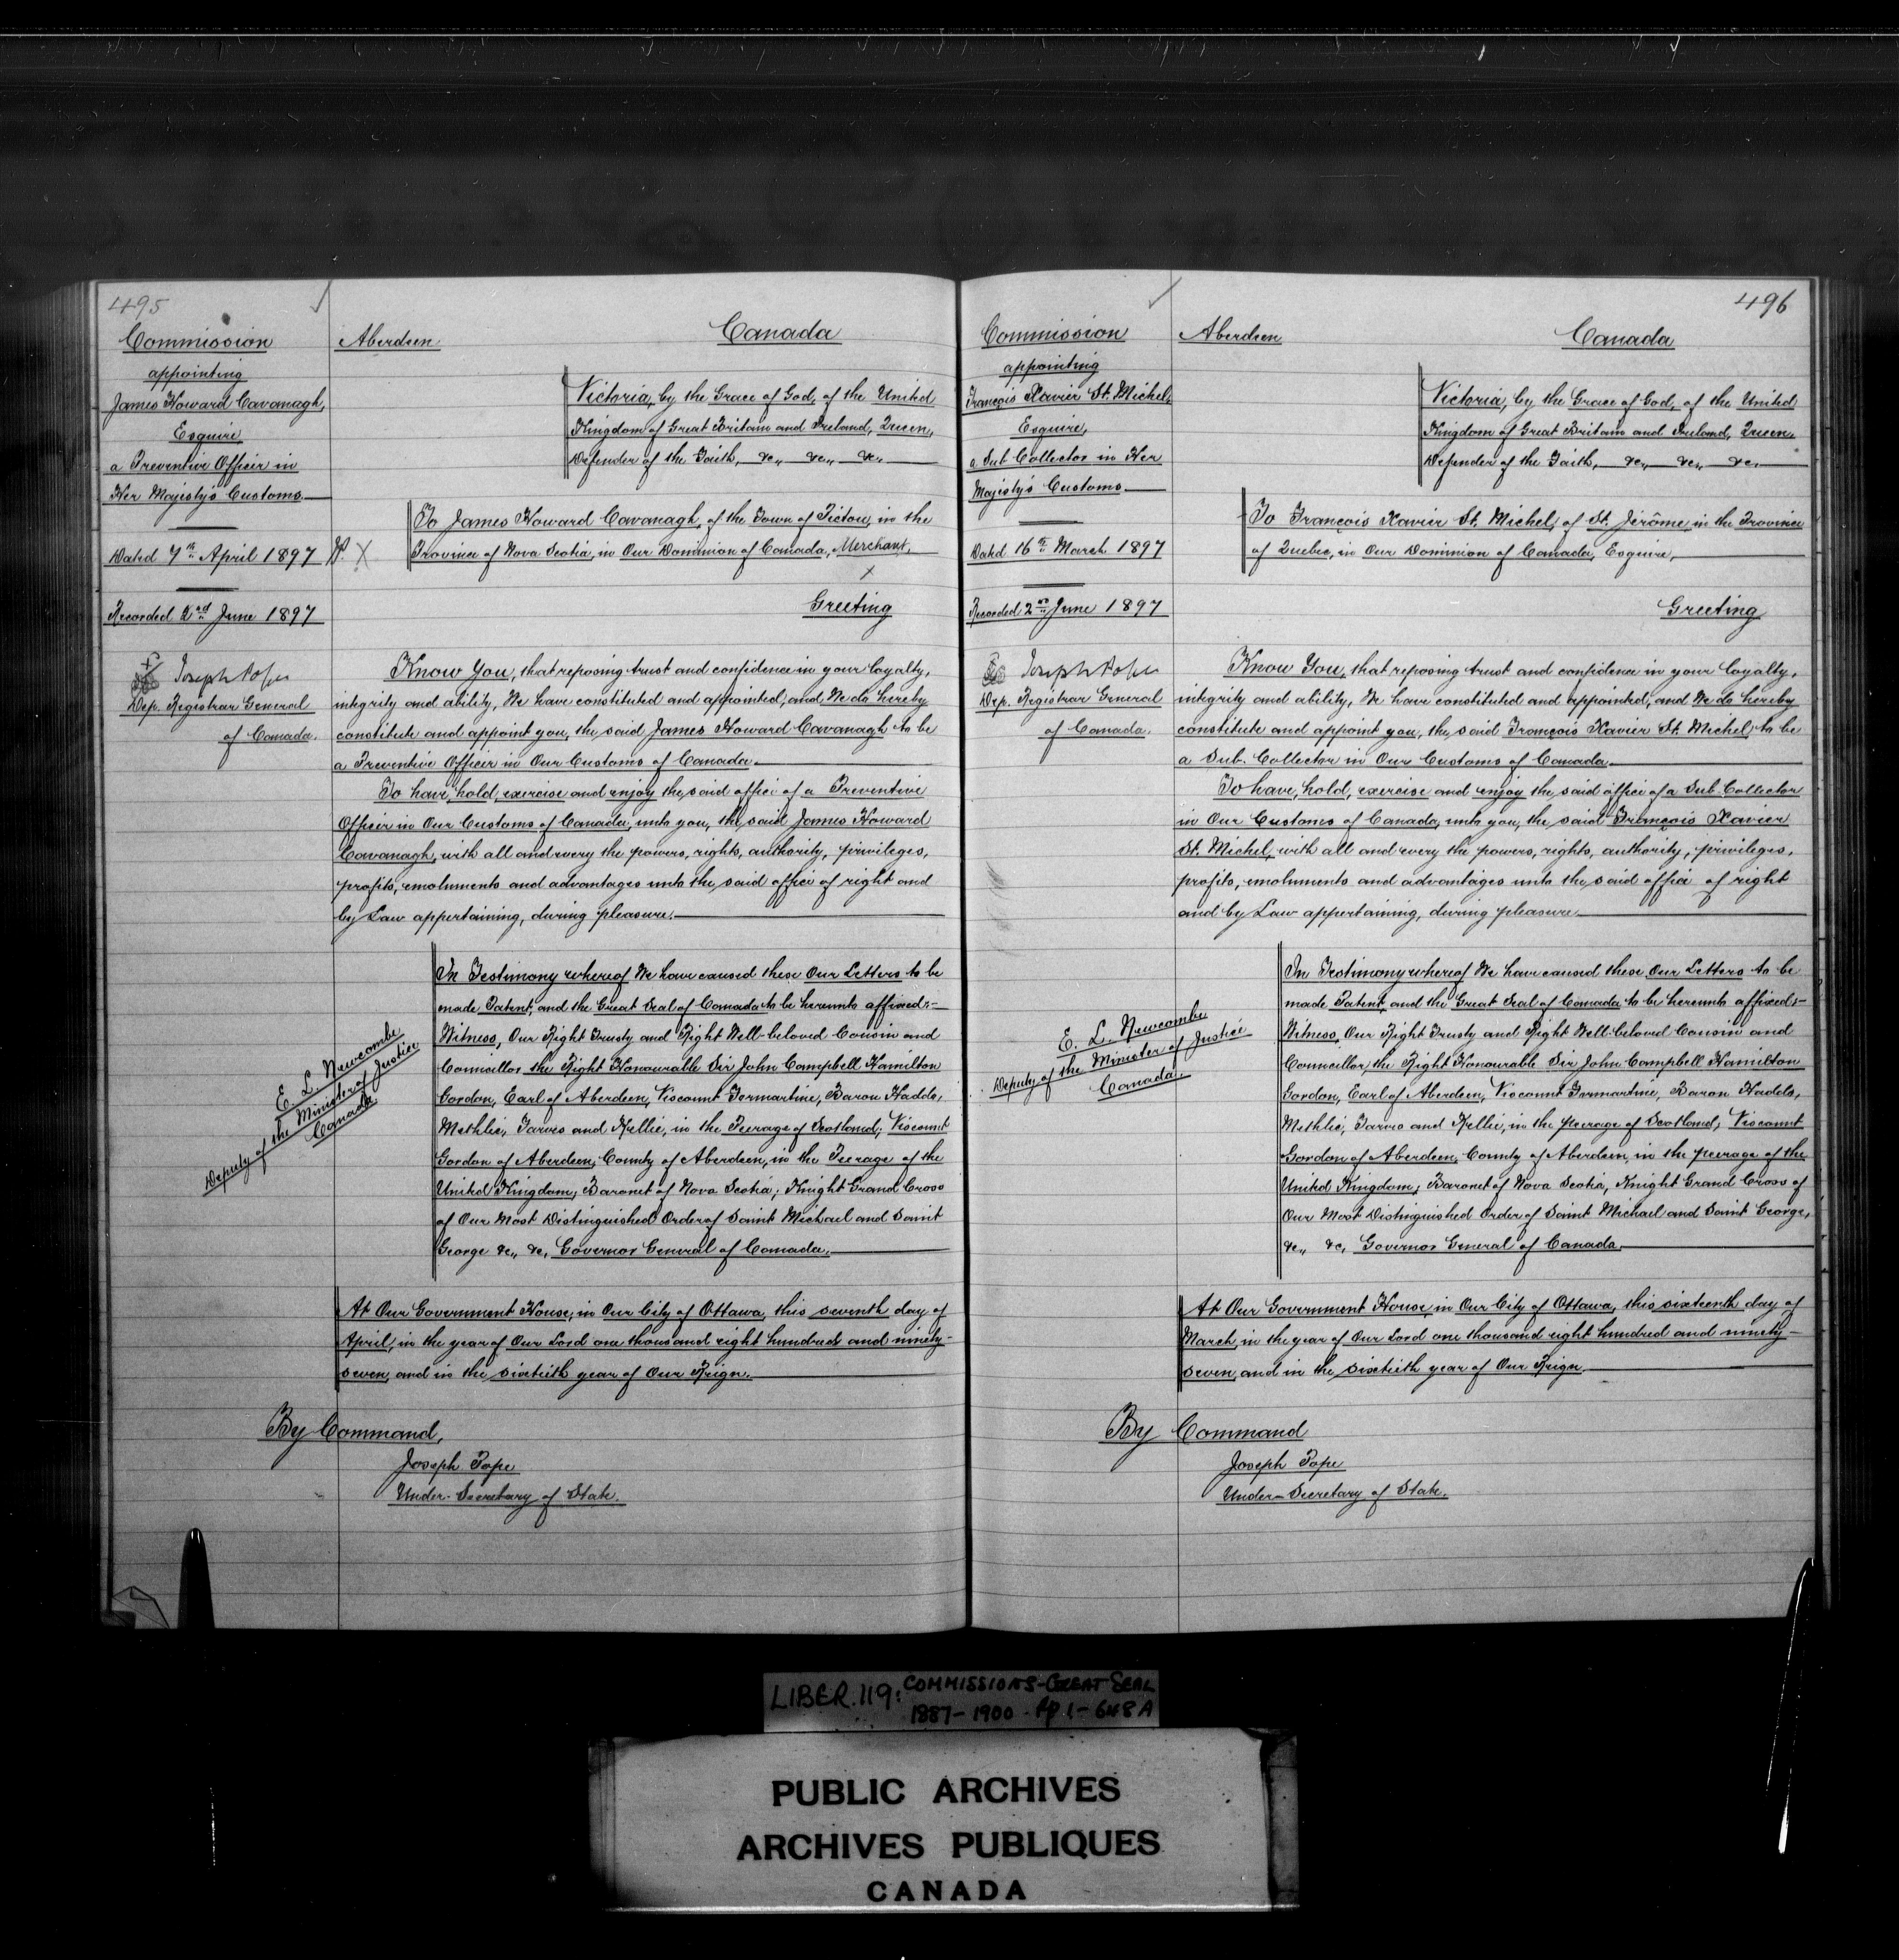 495
Commission
appointing
James Howard Cavanagh,
Esquire,
a Preventive Officer in
Her Majesty's Customs
Dated 7th April 1897
Recorded 2nd June 1897
Joseph Pope
Dep. Registrar General
of Canada.
E. L. Newcombe
Deputy of the Minister of Justice
Canada
Aberdeen
Canada
Victoria, by the Grace of God, of the United
Kingdom of Great Britain and Ireland, Queen,
Defender of the Faith, &c., &c., &c.,
To James Howard Cavanagh, of the Town of Pictou, in the
Province of Nova Scotia, in Our Dominion of Canada, Merchant,
X
X
Greeting
Know You, that reposing trust and confidence in your loyalty,
integrity and ability, We have constituted and appointed, and We do hereby
constitute and appoint you, the said James Howard Cavanagh to be
a Preventive Officer in Our Customs of Canada.
To have, hold, exercise and enjoy the said office of a Preventive
Officer in Our Customs of Canada, unto you, the said James Howard
Cavanagh, with all and every the powers, rights, authority, privileges,
profits, emoluments and advantages unto the said office of right and
by Law appertaining, during pleasure.
In Testimony whereof We have caused these Our Letters to be
made Patent, and the Great Seal of Canada to be hereunto affixed:-
Witness, Our Right Trusty and Right Well-beloved Cousin and
Councillor the Right Honourable Sir John Campbell Hamilton
Gordon, Earl of Aberdeen, Viscount Formartine, Baron Haddo,
Methlic, Tarves and Kellie, in the Peerage of Scotland; Viscount
Gordon of Aberdeen, County of Aberdeen, in the Peerage of the
United Kingdom; Baronet of Nova Scotia; Knight Grand Cross
of Our Most Distinguished Order of Saint Michael and Saint
George &c., &c., Governor General of Canada.
At Our Government House, in Our City of Ottawa, this seventh day of
April, in the year of Our Lord one thousand eight hundred and ninety-
seven, and in the sixtieth year of Our Reign.
By Command,
Joseph Pope
Under-Secretary of State.
496
Commission
appointing
François Xavier St. Michel,
Esquire,
a Sub Collector in Her
Majesty's Customs
Dated 16th March 1897
Recorded 2nd June 1897
Joseph Pope
Dep. Registrar General
of Canada.
E. L. Newcombe
Deputy of the Minister of Justice
Canada.
Aberdeen
Canada
Victoria, by the Grace of God, of the United
Kingdom of Great Britain and Ireland, Queen,
Defender of the Faith, &c., &c., &c.
To François Xavier St. Michel, of St. Jérôme, in the Province
of Quebec, in Our Dominion of Canada, Esquire,
Greeting
Know You, that reposing trust and confidence in your loyalty,
integrity and ability, We have constituted and appointed, and We do hereby
constitute and appoint you, the said François Xavier St. Michel, to be
a Sub. Collector in Our Customs of Canada.
To have, hold, exercise and enjoy the said office of a Sub-Collector
in Our Customs of Canada, unto you, the said François Xavier
St. Michel, with all and every the powers, rights, authority, privileges,
profits, emoluments and advantages unto the said office of right
and by Law appertaining, during pleasure.
In Testimony whereof We have caused these Our Letters to be
made Patent, and the Great Seal of Canada to be hereunto affixed:-
Witness, Our Right Trusty and Right Well-beloved Cousin and
Councillor the Right Honourable Sir John Campbell Hamilton
Gordon, Earl of Aberdeen, Viscount Formartine, Baron Haddo,
Methlic, Tarves and Kellie, in the peerage of Scotland; Viscount
Gordon of Aberdeen, County of Aberdeen, in the peerage of the
United Kingdom; Baronet of Nova Scotia, Knight Grand Cross of
Our Most Distinguished Order of Saint Michael and Saint George,
&c., &c., Governor General of Canada.
At Our Government House, in Our City of Ottawa, this sixteenth day of
March, in the year of Our Lord one thousand eight hundred and ninety-
seven, and in the sixtieth year of Our Reign.
By Command
Joseph Pope
Under-Secretary of State.
LIBER.119: COMMISSIONS-GREAT SEAL
1887-1900 - pp 1-648A
PUBLIC ARCHIVES
ARCHIVES PUBLIQUES
CANADA